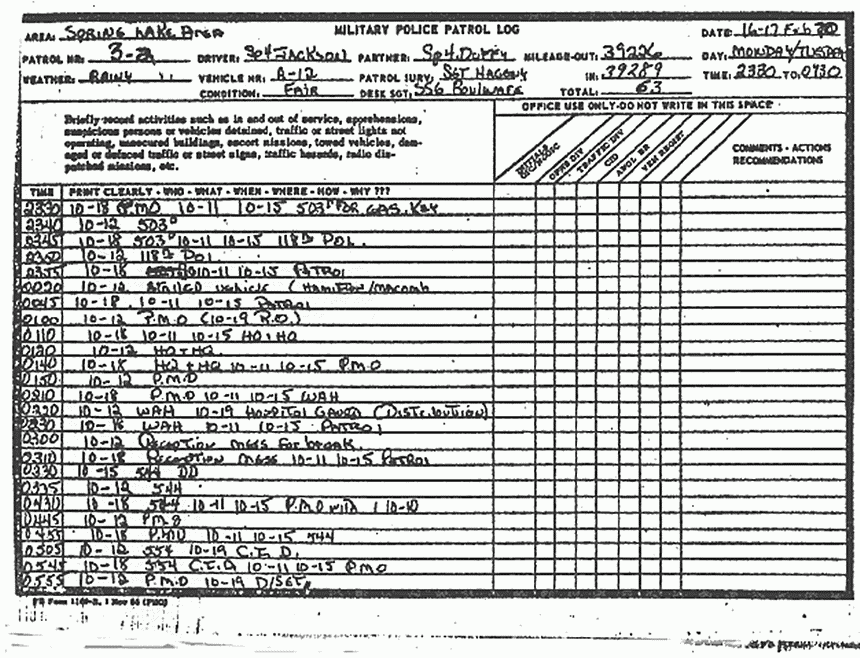 AREA: SPRING LAKE AREA MILITARY POLICE PATROL LOG DATE: 16-17 Feb 70
PATROL NR: 3-2 DRIVER: Sp4 JACKSON PARTNER: Sp4 Duffy MILEAGE-OUT: 39226 DAY: MONDAY/TUESDAY
WEATHER: RAINY VEHICLE NR: A-12 PATROL SUPV: SGT HAGENY IN: 39289 TIME: 2330 TO: 0730
CONDITION: FAIR DESK SGT: SSG BOULWARE TOTAL: 63
OFFICE USE ONLY-DO NOT WRITE IN THIS SPACE
Briefly record activities such as in and out of service, apprehensions,
suspicious persons or vehicles detained, traffic or street lights not
operating, unsecured buildings, escort missions, towed vehicles, dam-
aged or defaced traffic or street signs, traffic hazards, radio dis-
patched missions, etc.
INITIALS
OPNS DIV
TRAFFIC DIV
CID
AWOL BR
VEH REGIST
COMMENTS - ACTIONS
RECOMMENDATIONS
TIME PRINT CLEARLY - WHO - WHAT - WHEN - WHERE - HOW - WHY ???
2330 10-18 P.M.O 10-11 10-15 503D FOR GAS. KEY
2340 10-12 503D
2345 10-18 503D 10-11 10-15 118th POL.
2350 10-12 118th POL
2355 10-18 10-11 10-15 PATROL
0020 10-12 STALLED VEHICLE (HAMILTON/MACOMB
0045 10-18 10-11 10-15 PATROL
0100 10-12 P.M.O (10-19 R.O.)
0110 10-18 10-11 10-15 HQ+HQ
0120 10-12 HQ+HQ
0140 10-18 HQ+HQ 10-11 10-15 P.M.O
0150 10-12 P.M.O
0210 10-18 P.M.O 10-11 10-15 WAH
0220 10-12 WAH 10-19 HOSPITAL GUARD (DISTRIBUTION)
0230 10-18 WAH 10-11 10-15 PATROL
0300 10-12 RECEPTION MESS FOR BREAK
0310 10-18 RECEPTION MESS 10-11 10-15 PATROL
0330 10-15 544 DD
0335 10-12 544
0430 10-18 544 10-11 10-15 P.M.O WITH 1 10-10
0445 10-12 P.M.O
0455 10-18 P.M.O 10-11 10-15 544
0505 10-12 554 10-19 C.I.D.
0545 10-18 554 C.I.D 10-11 10-15 P.M.O
0555 10-12 P.M.O 10-19 D/SGT